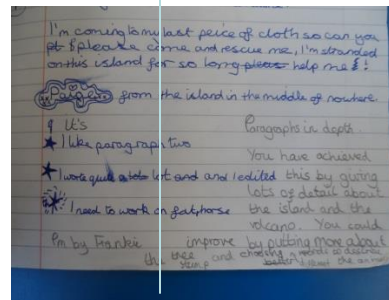 I'm coming to my last peice of cloth so can you
please come and rescue me, I'm stranded
on this island for so long help me!
from the island in the middle of nowhere.
It's
I like paragraph two
I wrote quite a lot and and I edited
I need to work on
P.m by Frankie
Paragraphs in depth.
You have achieved
this by giving
lots of detail about
the island and the
volcano. You could
improve by putting more about
the tree and choosing words to describe